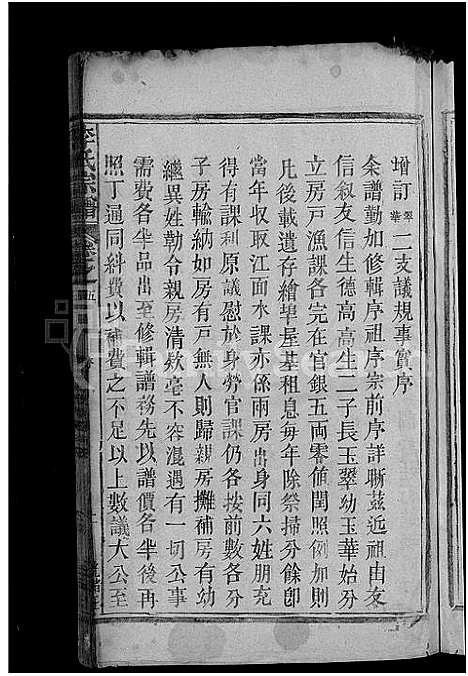 增訂翠華二支議規事實序
余譜勤加修輯序祖序宗前序詳晰茲近祖由友
信叙友信生德高高生二子長玉翠幼玉華始分
立房戶漁課各完在官銀五両零值閏照例加則
凡後載遺存繪埠屋基租息每年除祭掃分餘即
當年收取江面水課亦係兩房出身同六姓朋充
得有課利原議慰於身勞官課仍各按前數各分
子房輸納如房有戶無人則歸親房攤補房有幼
繼異姓勒令親房清欵毫不容混遇有一切公事
需費各半品出至修輯譜務先以譜價各半後再
照丁通同斜費以補費之不足以上數議大公至
李氏宗譜
卷之五